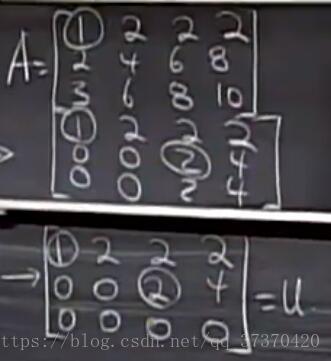 A= 1 2 2 2
2 4 6 8
3 6 8 10
1 2 2 2
0 0 2 4
0 0 2 4
→ 1 2 2 2
0 0 2 4 =U
0 0 0 0
https://blog.csdn.net/qq_37370420